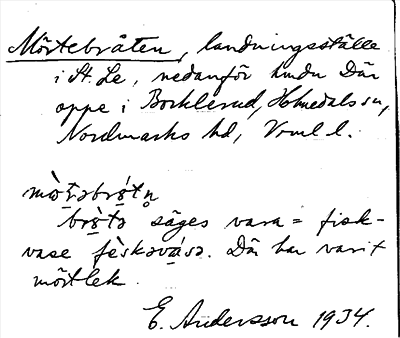 Mörtebråten, landningsställe
i St. Le, nedanför hmdn Där
oppe i Bocklerud, Holmedals sn,
Nordmarks hd, Vrml l.
mò̀t̠əbrǫ́tn̥
brǫ̀tə säges vara = fisk-
vase fèskəvásə. Där har varit
mörtlek.
E. Andersson 1934.